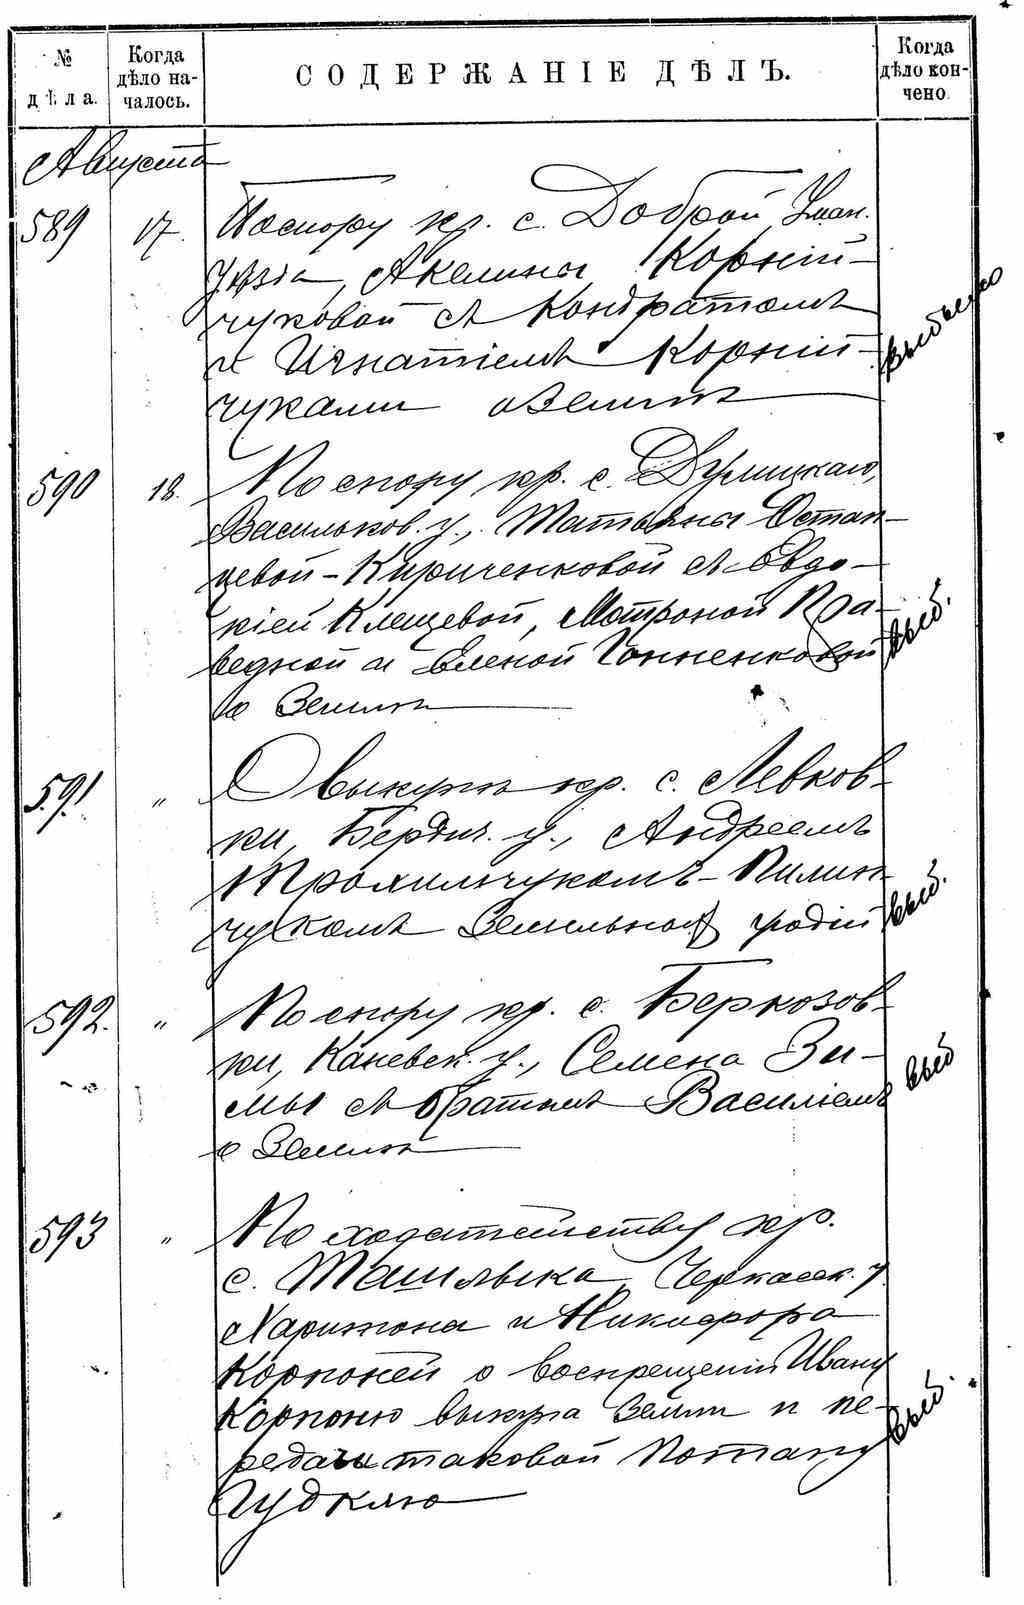 № дѣла.
Когда дѣло началось.
СОДЕРЖАНІЕ ДѢЛЪ.
Когда дѣло кончено.
Августа
589 17. По спору кр. с. Доброй Уман.
уѣзда, Акелины Корній-
чуковой съ Кондратомъ
и Игнатіемъ Корній-
чуками о землѣ
выбыло
590 18. По спору кр. с.
Васильков. у., Татьяны Остап-
цевой-Кириченковой съ Евдо-
кіей Клещевой, Матроной Пра-
ведной и Еленой
о землѣ
выб.
591 " О выкупѣ кр. с. Левков-
ки, Бердич. у., Андреемъ
Трохимчукомъ-Пилип-
чукомъ земельной
выб.
592 " По спору кр. с. Беркозов-
ки, Каневск. у., Семена Зи-
мы съ братомъ Василіемъ
о землѣ
выб
593 " По ходатайству кр.
с. Ташлыка, Черкасск. у.
Харитона и Никифора
Корпоней о воспрещеніи Ивану
Корпоню выкупа земли и пе-
редачи таковой Потапу
Гудклю
выб.